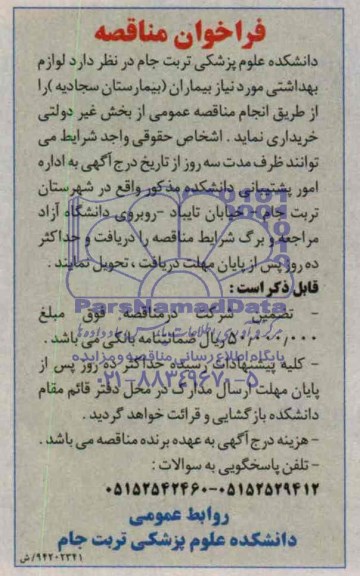 فراخوان مناقصه
دانشکده علوم پزشکی تربت جام در نظر دارد لوازم
بهداشتی مورد نیاز بیماران (بیمارستان سجادیه) را
از طریق انجام مناقصه عمومی از بخش غیر دولتی
خریداری نماید . اشخاص حقوقی واجد شرایط می
توانند ظرف مدت سه روز از تاریخ درج آگهی به اداره
امور پشتیبانی دانشکده مذکور واقع در شهرستان
تربت جام - خیابان تایباد -روبروی دانشگاه آزاد
مراجعه و برگ شرایط مناقصه را دریافت و حداکثر
ده روز پس از پایان مهلت دریافت ، تحویل نمایند .
قابل ذکر است :
- تضمین شرکت درمناقصه فوق مبلغ
ریال ضمانتنامه بانکی می باشد .
- کلیه پیشنهادات رسیده حداکثر ده روز پس از
پایان مهلت ارسال مدارک در محل دفتر قائم مقام
دانشکده بازگشایی و قرائت خواهد گردید .
- هزینه درج آگهی به عهده برنده مناقصه می باشد .
- تلفن پاسخگویی به سوالات :
۰۵۱۵۲۵۴۲۴۶۰-۰۵۱۵۲۵۲۹۴۱۲
روابط عمومی
دانشکده علوم پزشکی تربت جام
۹۴۲۰۲۳۴۱/ش
ParsNamadData
پایگاه اطلاع رسانی مناقصه و مزایده
۰۲۱-۸۸۳۴۹۶۷۰-۵